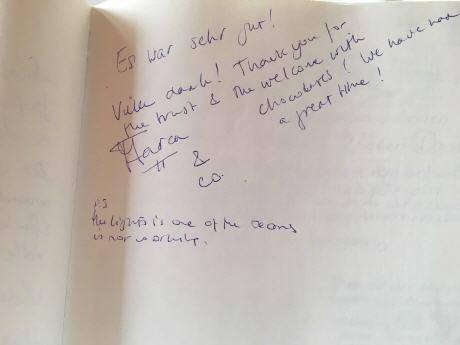 Es war sehr gut!
Vielen dank! Thank you for
the trust & the welcome with
chocolates! We have had
a great time!
&
co.
PS
the lights is one of the rooms
is not working.